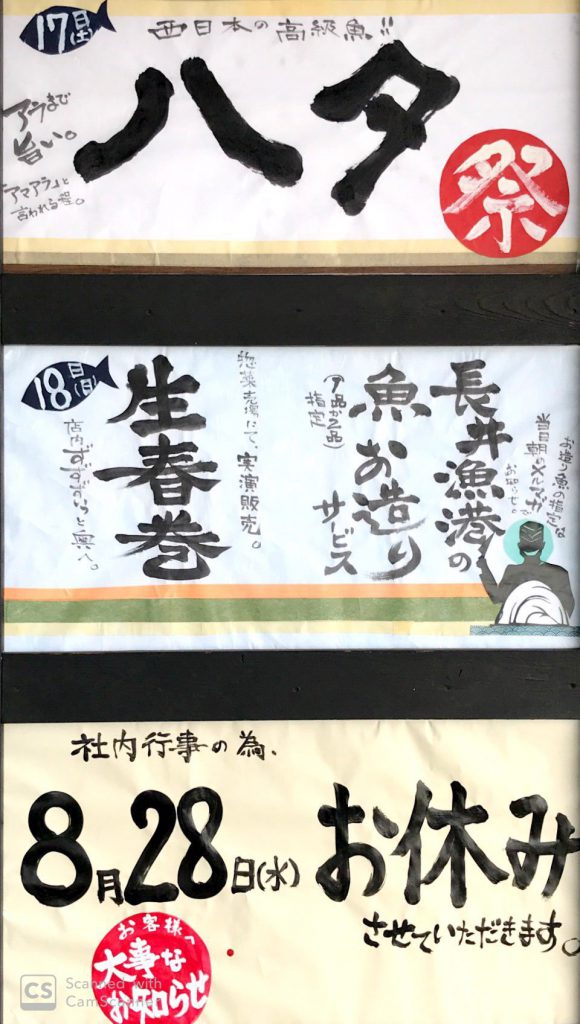 17日(土)
西日本の高級魚!!
ハタ
祭
アラまで
旨い。
「アマアラ」と
言われる程。
18日(日)
お造り魚の指定は
当日朝のメルマガ
長井漁港の
魚お造り
サービス
指定
惣菜売場にて、実演販売。
生春巻
店内ずずずいっと奥へ。
社内行事の為、
8月28日(水) お休み
させていただきます。
お客様へ
大事な
お知らせ
CS Scanned with
CamScanner